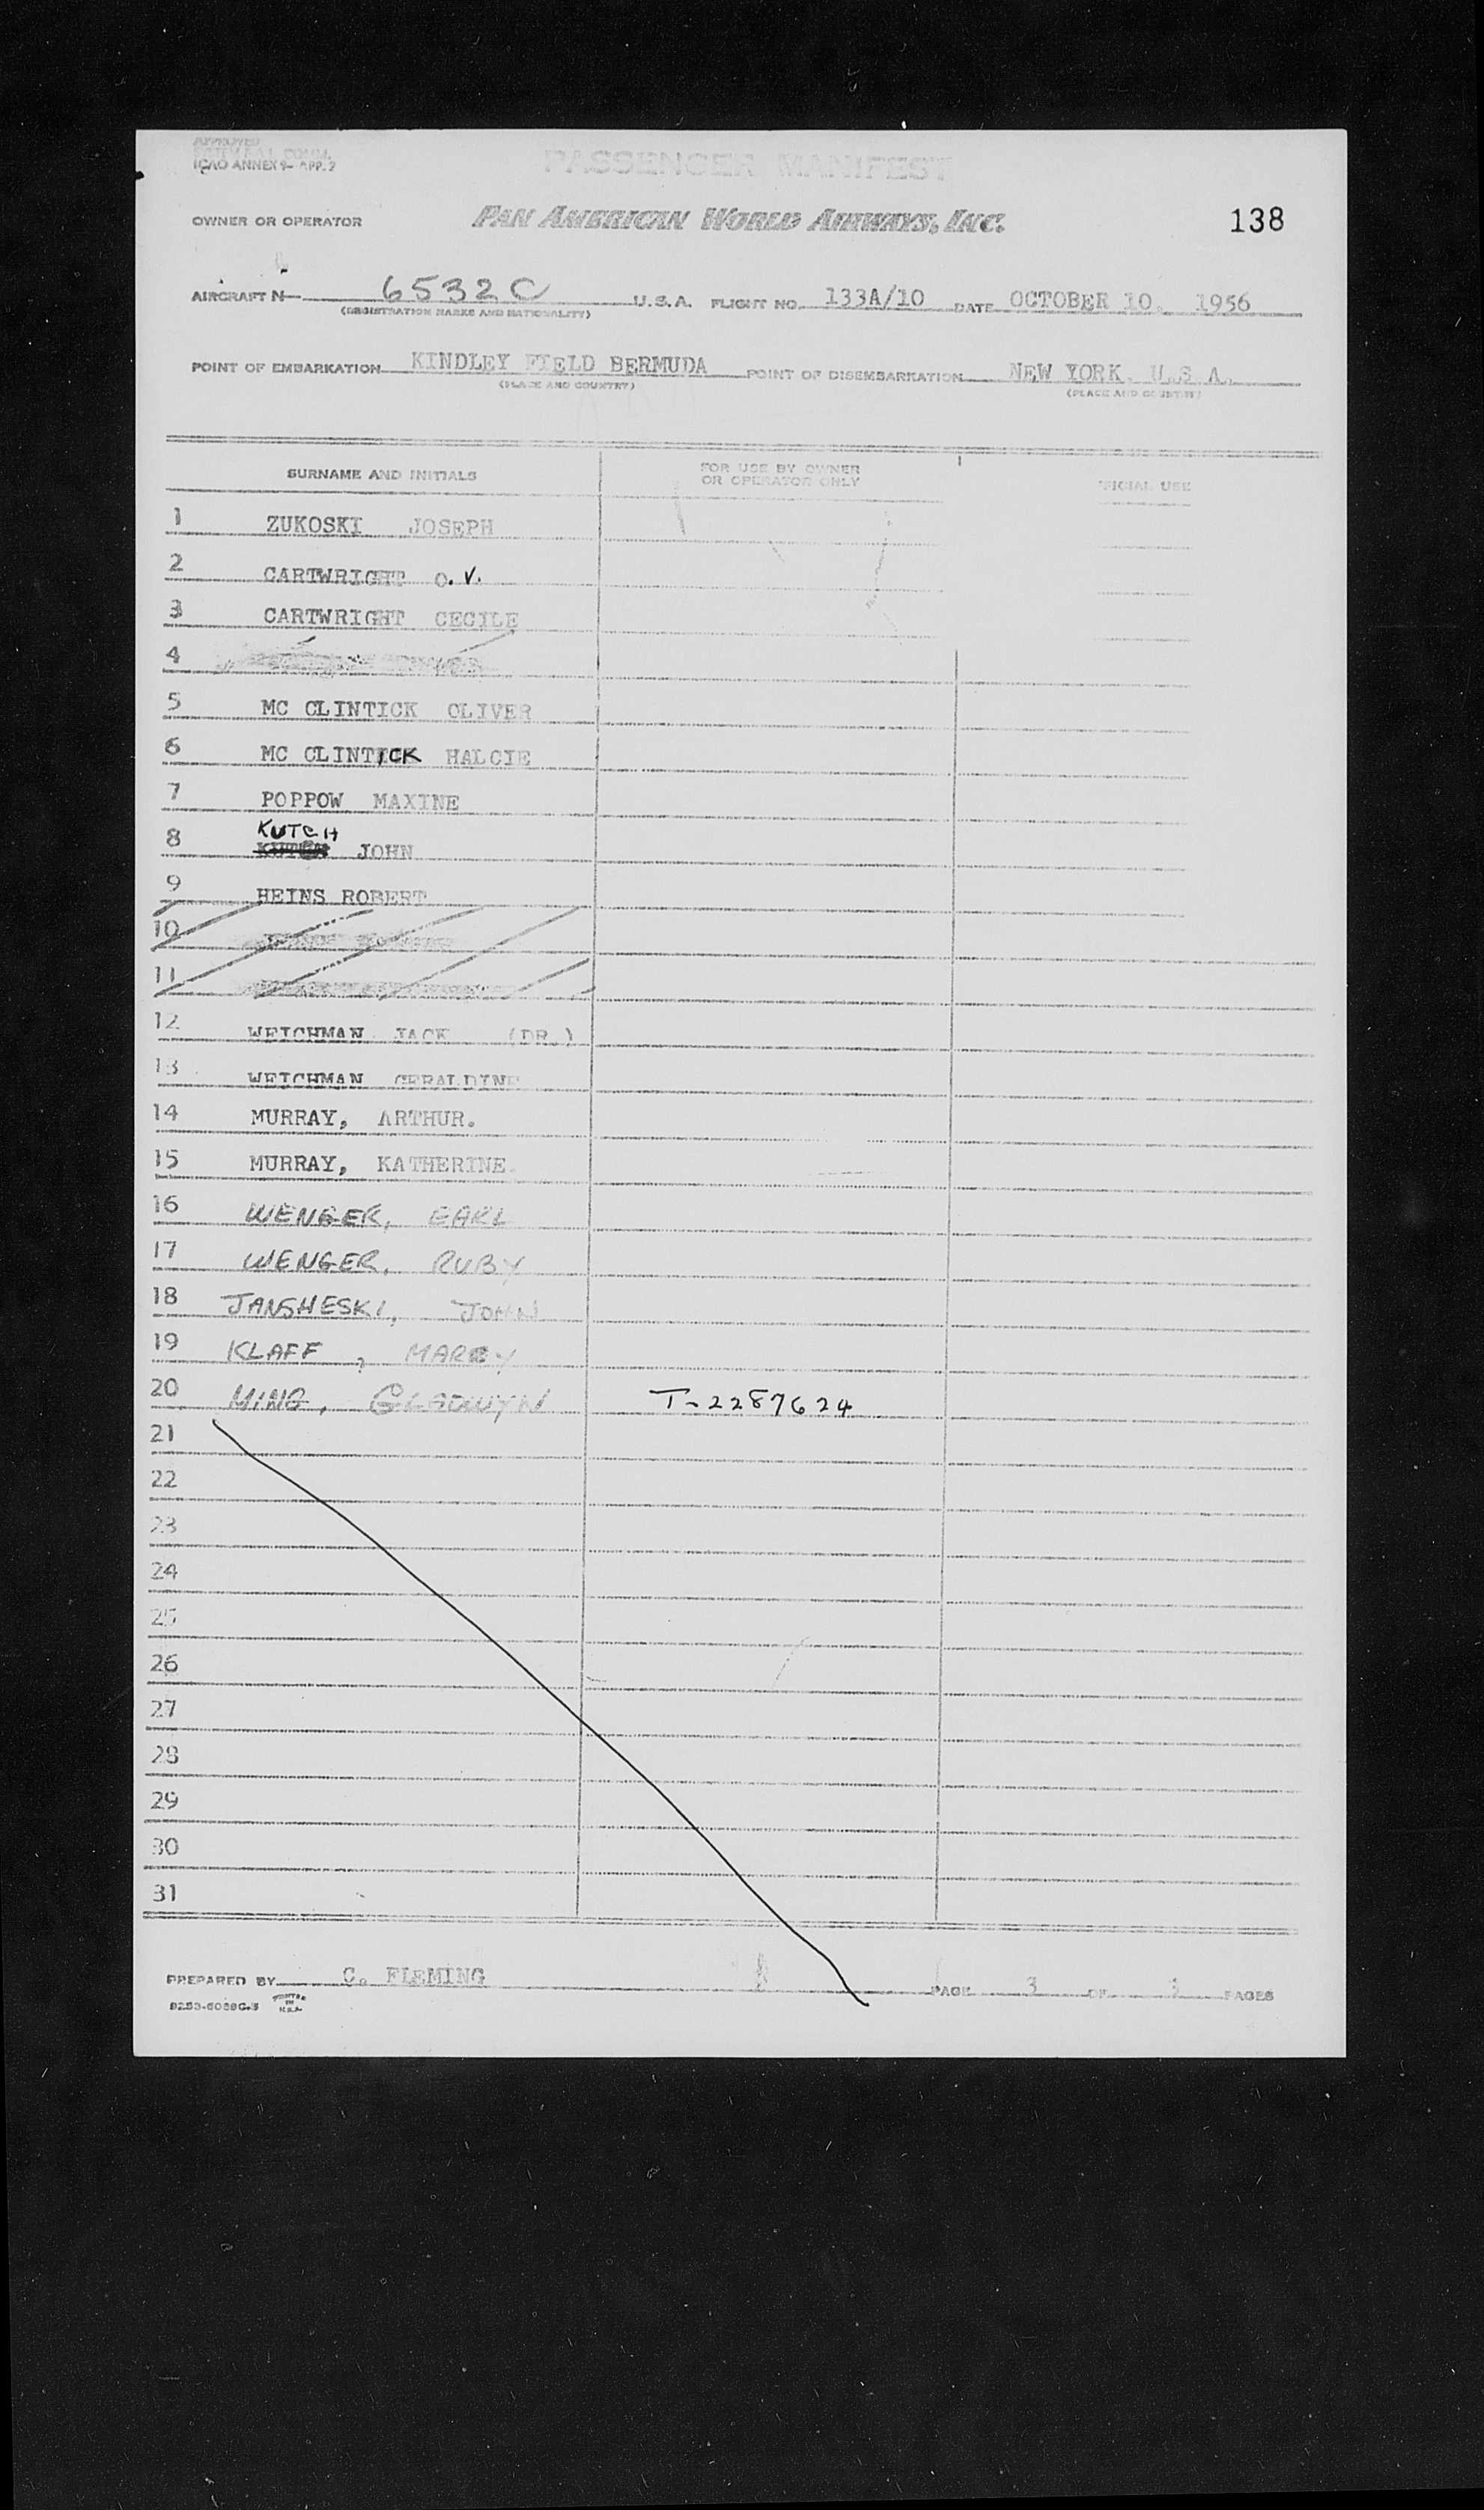 APPROVED
ICAO ANNEX 9- APP. 2
PASSENGER MANIFEST
OWNER OR OPERATOR PAN AMERICAN WORLD AIRWAYS, INC. 138
AIRCRAFT N- 6532C U.S.A. FLIGHT NO. 133A/10 DATE OCTOBER 10, 1956
(REGISTRATION MARKS AND NATIONALITY)
POINT OF EMBARKATION KINDLEY FIELD BERMUDA POINT OF DISEMBARKATION NEW YORK, U.S.A.
(PLACE AND COUNTRY) (PLACE AND COUNTRY)
SURNAME AND INITIALS FOR USE BY OWNER OR OPERATOR ONLY FICIAL USE
1 ZUKOSKI JOSEPH
2 CARTWRIGHT O. V.
3 CARTWRIGHT CECILE
4
5 MC CLINTICK OLIVER
6 MC CLINTICK HALCIE
7 POPPOW MAXINE
8 KUTCH JOHN
9 HEINS ROBERT
10
11
12 WEICHMAN JACK (DR.)
13 WEICHMAN GERALDINE
14 MURRAY, ARTHUR.
15 MURRAY, KATHERINE.
16 WENGER, EARL
17 WENGER, RUBY
18 JANSHESKI, JOHN
19 KLAFF, MARRY
20 MING, GLADWYN T-2287624
21
22
23
24
25
26
27
28
29
30
31
PREPARED BY C. FLEMING PAGE 3 OF PAGES
PRINTED IN U.S.A.